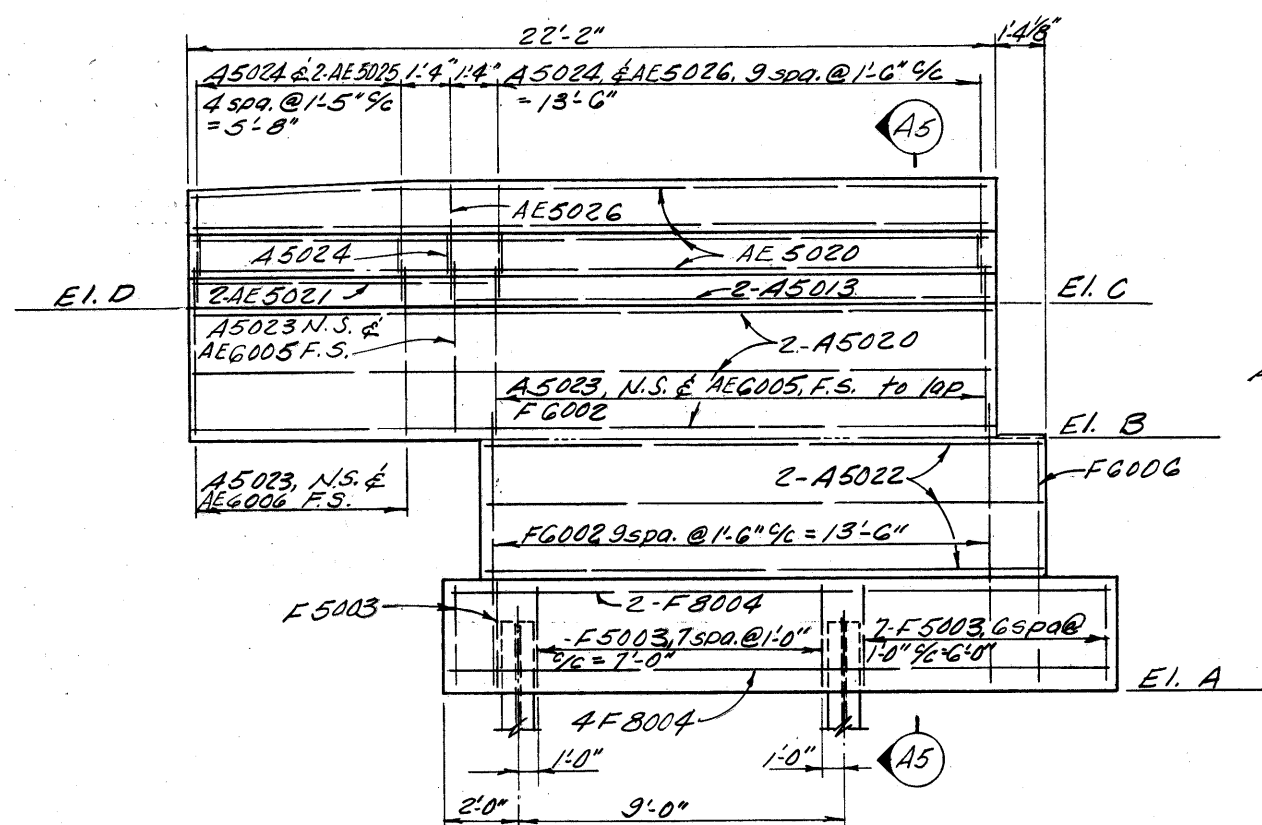 22'-2"
1'-4 1/8"
A5024 & 2-AE5025
4 spa. @ 1'-5" c/c
= 5'-8"
1'-4"
1'-4"
A5024, & AE5026, 9 spa. @ 1'-6" c/c
= 13'-6"
A5
AE5026
A5024
AE 5020
2-AE5021
2-A5013
El. D
El. C
A5023 N.S. &
AE6005 F.S.
2-A5020
A5023, N.S. & AE6005, F.S. to lap
F6002
El. B
A5023, N.S. &
AE6006 F.S.
2-A5022
F6006
F6002 9 spa. @ 1'-6" c/c = 13'-6"
F5003
2-F8004
-F5003, 7 spa. @ 1'-0"
c/c = 7'-0"
7-F5003, 6 spa @
1'-0" c/c = 6'-0"
El. A
4 F8004
1'-0"
1'-0"
A5
2'-0"
9'-0"